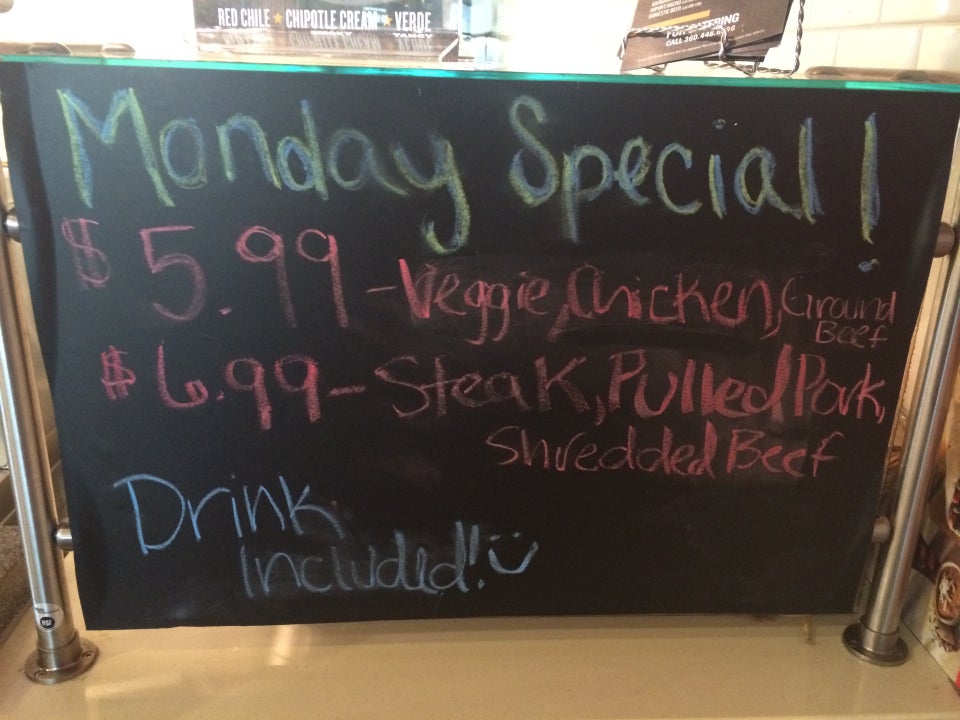 RED CHILE ★ CHIPOTLE CREAM ★ VERDE
SMOKY TANGY
FOR CATERING
Monday Special!
$5.99 - Veggie, Chicken, Ground
Beef
$6.99 - Steak, Pulled Pork,
Shredded Beef
Drink
included! :)
NSF